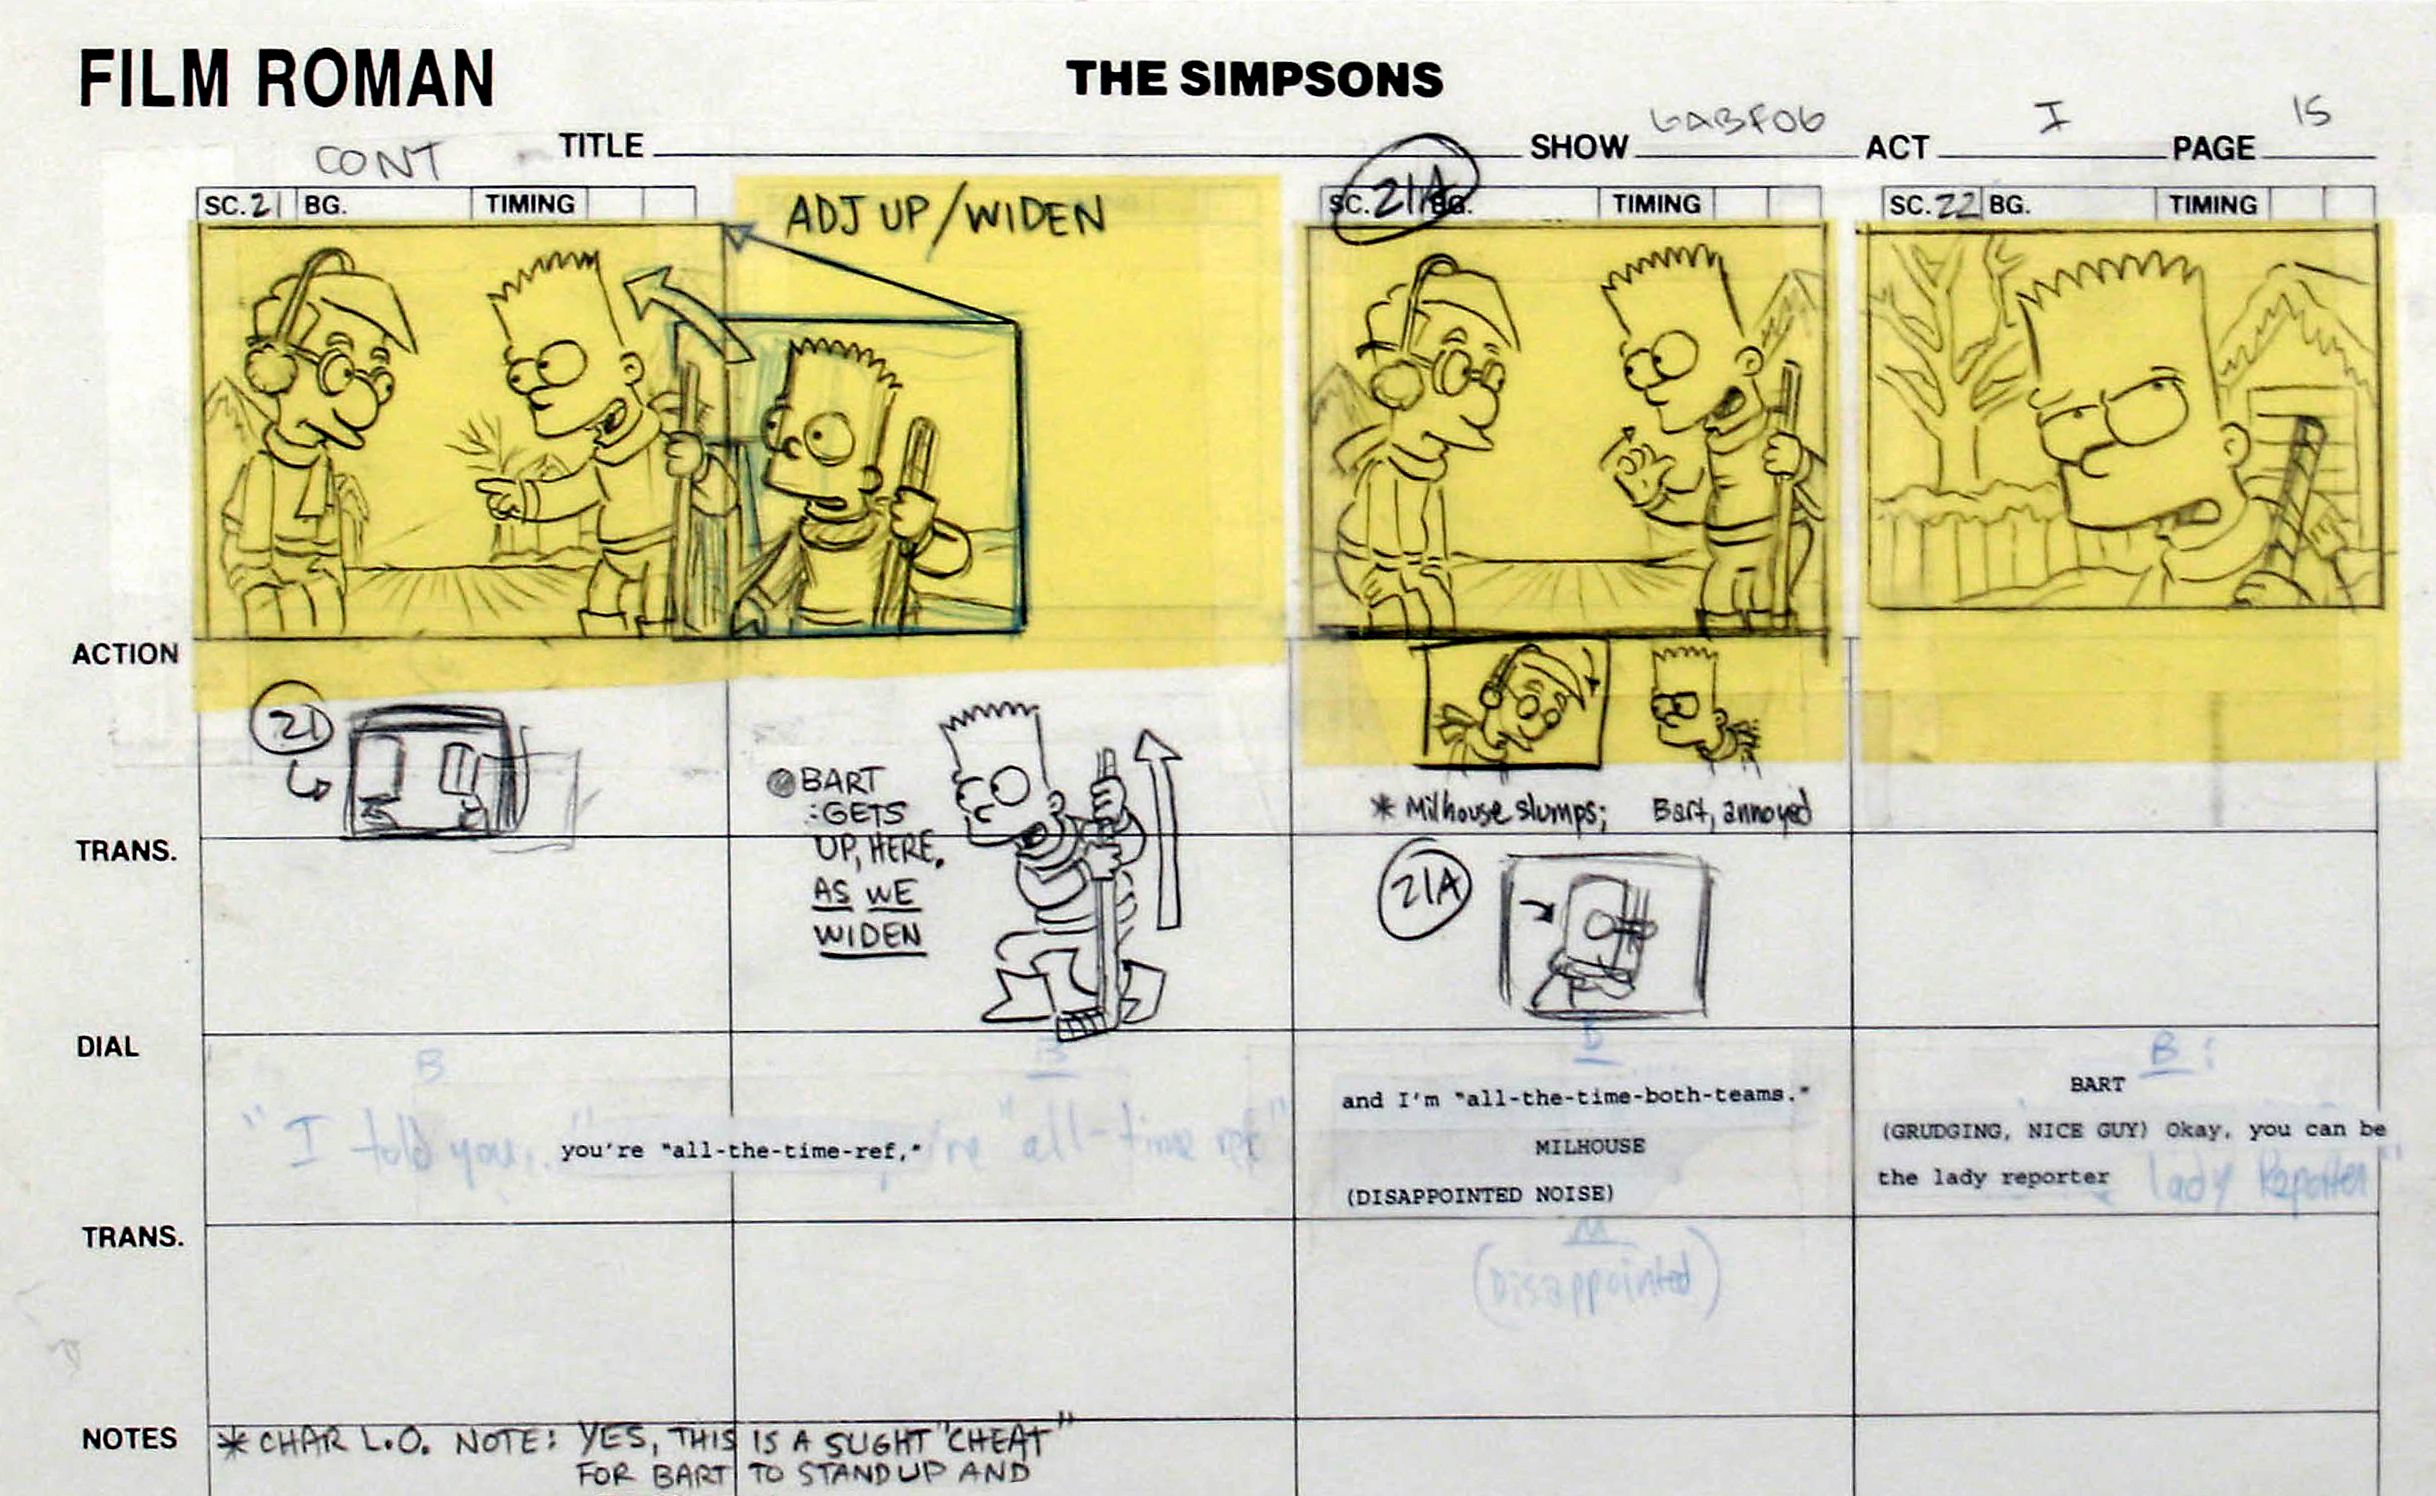 FILM ROMAN
THE SIMPSONS
TITLE
SHOW GABF06
ACT I
PAGE 15
CONT
SC. 21 BG. TIMING
ADJ UP/WIDEN
SC. 21A BG. TIMING
SC. 22 BG. TIMING
ACTION
21
BART
GETS
UP, HERE,
AS WE
WIDEN
* Milhouse slumps; Bart, annoyed
TRANS.
21A
DIAL
B
"I told you..."
you're "all-the-time-ref,"
're "all-time ref"
B
and I'm "all-the-time-both-teams."
MILHOUSE
(DISAPPOINTED NOISE)
M
(Disappointed)
B:
BART
(GRUDGING, NICE GUY) Okay, you can be
the lady reporter
lady Reporter"
TRANS.
NOTES
* CHAR L.O. NOTE: YES, THIS IS A SLIGHT "CHEAT"
FOR BART TO STAND UP AND